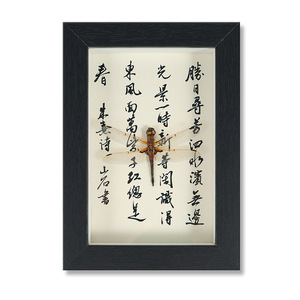 勝日尋芳泗水濱無邊
光景一時新等閒識得
東風面萬紫千紅總是
春 朱熹詩 山石書